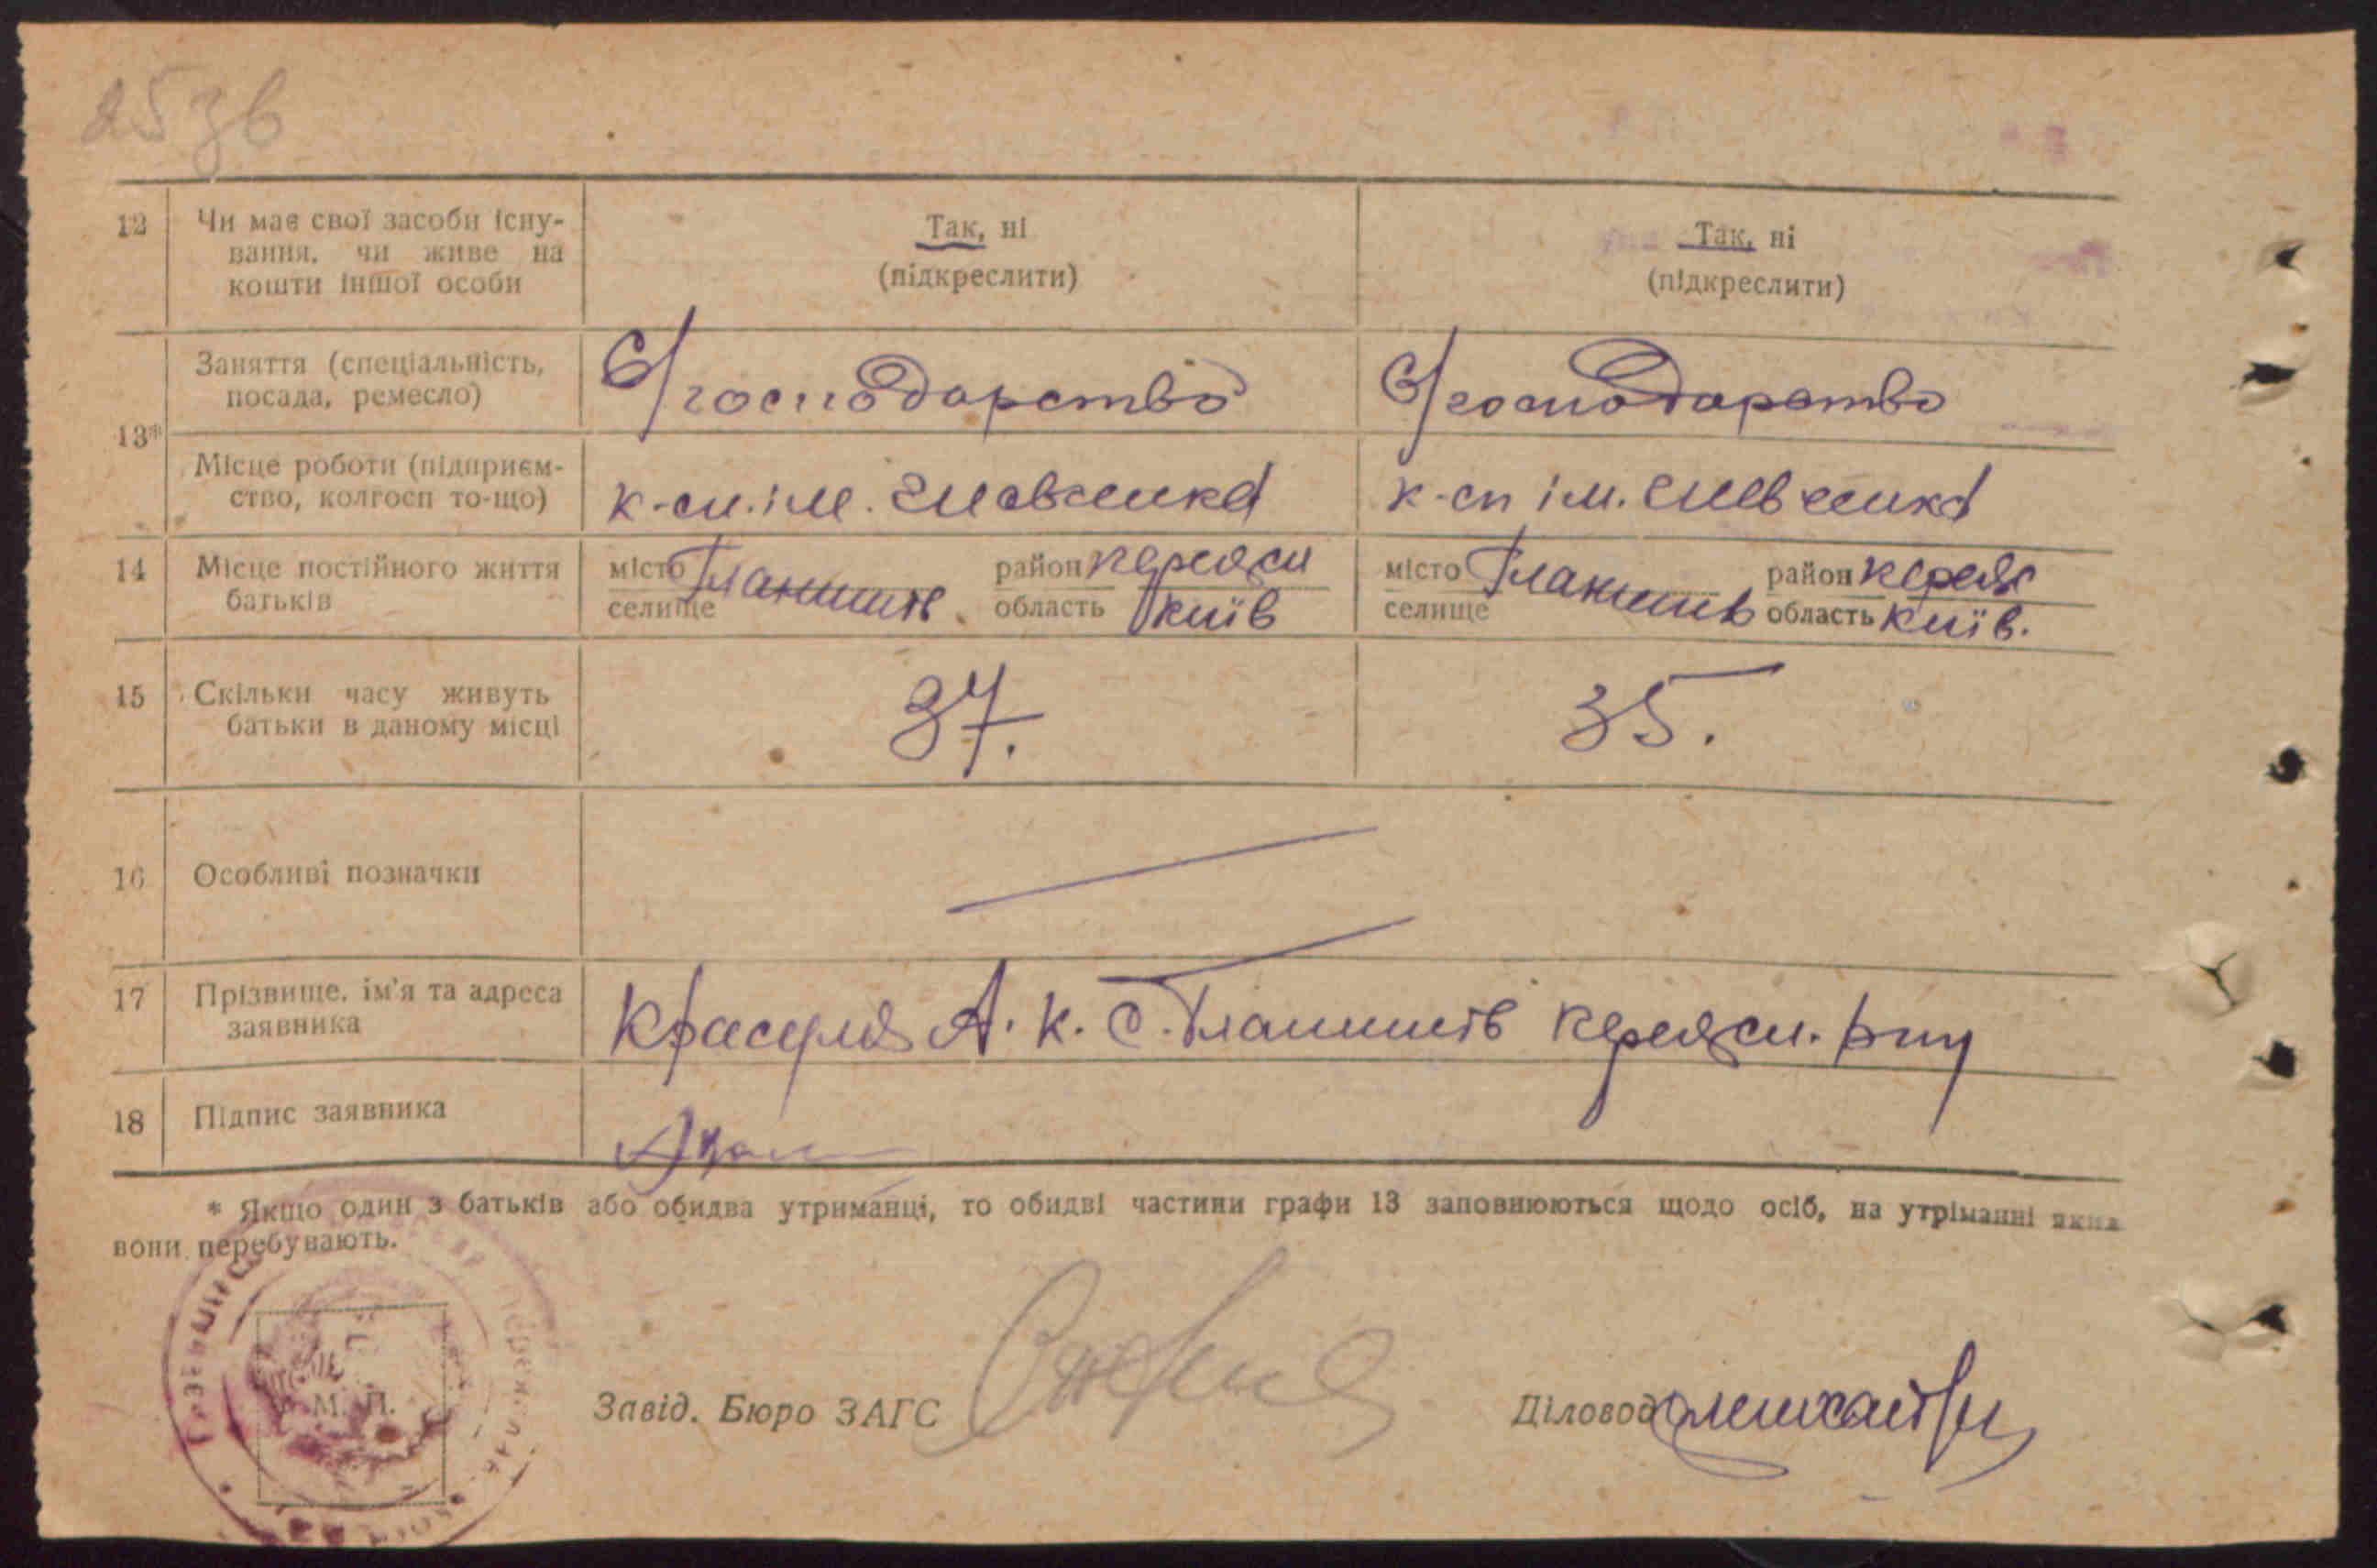 25зв
12 Чи має свої засоби існу-
вання, чи живе на
кошти іншої особи
Так, ні
(підкреслити)
Так, ні
(підкреслити)
13*
Заняття (спеціальність,
посада, ремесло)
С/господарство
С/господарство
Місце роботи (підприєм-
ство, колгосп то-що)
к-сп. ім. Шевченка
к-сп ім. Шевченка
14 Місце постійного життя
батьків
місто
селище
Гланишів
район Переясл
область Київ
місто
селище
Гланишів
район Переяс
область Київ.
15 Скільки часу живуть
батьки в даному місці
37.
35.
16 Особливі позначки
17 Прізвище, ім'я та адреса
заявника
Красуля А. К. с. Гланишів Переясл. р-ну
18 Підпис заявника
* Якщо один з батьків або обидва утриманці, то обидві частини графи 13 заповнюються щодо осіб, на утріманні яких
вони перебувають.
М. П.
Завід. Бюро ЗАГС
Діловод